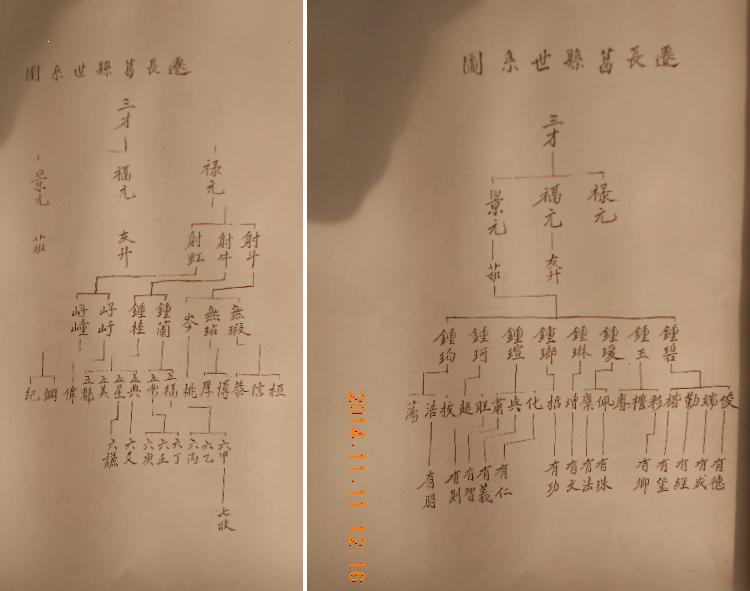 遷長葛縣世系圖
三才
祿元
福元
景元
射斗
射牛
射虹
友升
茹
無瑕
無玷
岑
鍾蘭
鍾桂
桓
信
恭
博
厚
桃
五福
五常
五典
五星
五美
五龍
偉
鋼
紀
六甲
六乙
六丙
六丁
六壬
六庚
六艾
六謙
七政
遷長葛縣世系圖
三才
祿元
福元
景元
友升
茹
鍾碧
鍾玉
鍾瑗
鍾琳
鍾瑯
鍾瑄
鍾珂
鍾珣
俊
端
勤
楷
彩
禮
佩
增
招
化
興
肅
旺
超
浩
有德
有成
有經
有堂
有卿
有珠
有法
有文
有功
有仁
有義
有智
有則
有明
2014.11.11 12:16